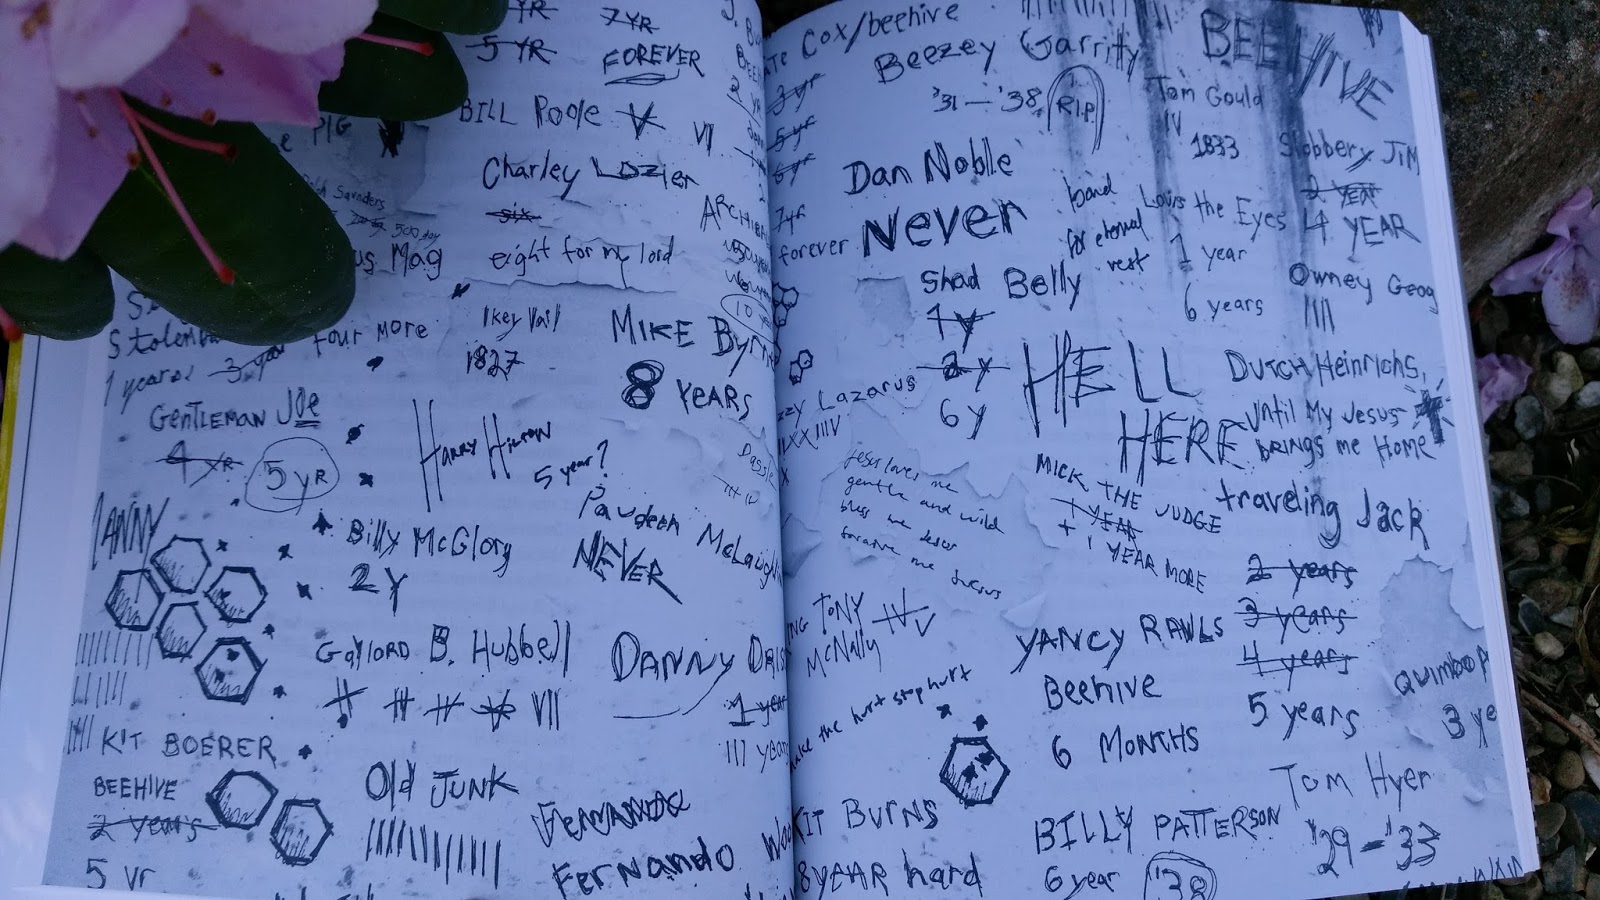 YR
5 YR
7 YR
FOREVER
BILL Poole
V
VII
PIG
Charley Lozier
six
eight for my lord
Saunders
500 day
Mag
four more
1 years
3 year
Ikey Vail
1827
MIKE Byrne
8 YEARS
10
GENTLEMAN JOE
4 YR
5 YR
HARRY HILSON
5 year?
LANNY
Billy McGlory
2 Y
Paudeen McLaughlin
NEVER
GAylORD B. Hubbell
VII
DANNY
1 year
III years
KIT BOERER
BEEHIVE
2 years
5 yr
Old JUNK
Fernando
Cox/beehive
3 yr
5 yr
6 yr
7 yr
forever
Beezey Garrity
'31 – '38
R.I.P
BEEHIVE
Tom Gould
IV
1833
Slobbery JiM
2 YEAR
4 YEAR
Dan Noble
Never
bound
for eternal
rest
Louis the Eyes
1 year
6 years
Owney Geog
IIII
Shad Belly
1 y
2 y
6 y
HELL
HERE
DUTCH Heinrichs
Until My Jesus
BRINGS me Home
Lazarus
Jesus loves me
gentle and wild
bless me Jesus
forgive me Jesus
MICK THE JUDGE
1 YEAR
+ 1 YEAR MORE
traveling Jack
2 years
3 years
4 years
5 years
TONY
McNally
IV
V
make the hurt stop hurt
YANCY RAWLS
Beehive
6 MONTHS
QUIMBO
3 ye
KIT BURNS
8 YEAR hard
BILLY PATTERSON
6 year
'38
Tom Hyer
'29 – '33